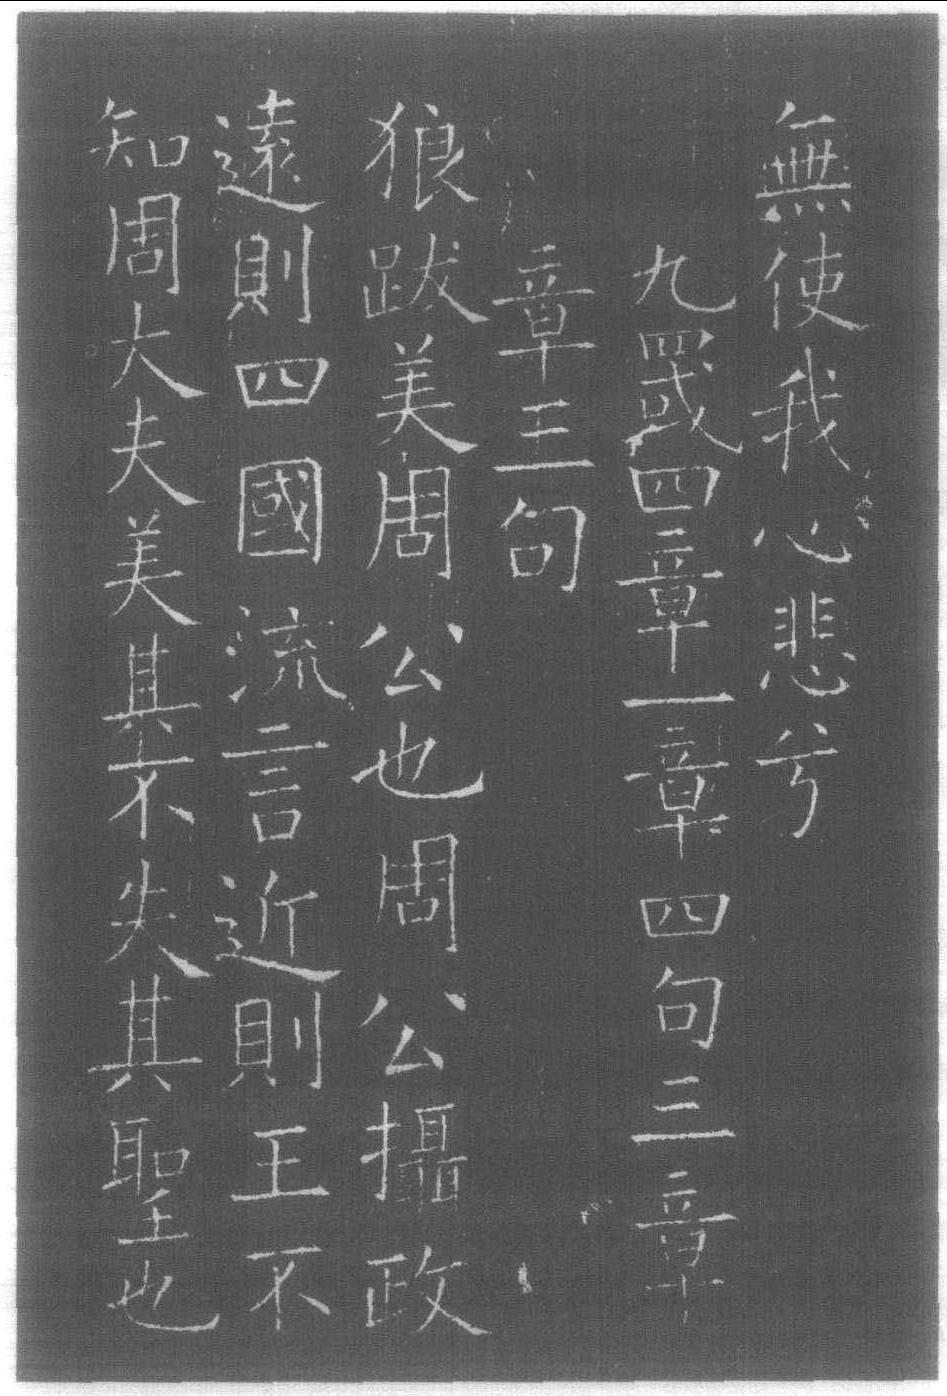 無使我心悲兮
九罭四章一章四句三章
章三句
狼跋美周公也周公攝政
遠則四國流言近則王不
知周大夫美其不失其聖也